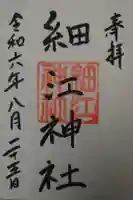 奉拝
細江神社
令和六年八月二十五日